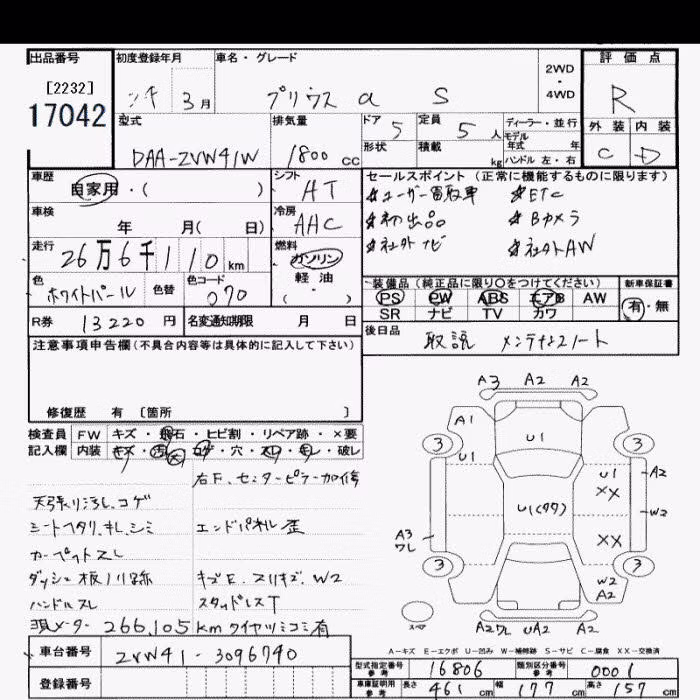 出品番号
[2232]
17042
初度登録年月
3月
車名・グレード
プリウス α S
2WD
・
4WD
評価点
R
外装 内装
C D
型式
DAA-ZVW41W
排気量
1800 cc
ドア 5
形状
定員 5 人
積載 kg
ディーラー・並行
モデル
年式 年
ハンドル 左・右
車歴
自家用・( )
シフト
AT
車検
年 月( 日)
冷房
AAC
走行
26万6千110 km
燃料
ガソリン
軽・油
( ・ )
色
ホワイトパール
色替
色コード
070
R券 13220 円
名変通知期限 月 日
セールスポイント(正常に機能するものに限ります)
☆ユーザー買取車 ☆ETC
☆初出品 ☆Bカメラ
☆社外ナビ ☆社外AW
装備品(純正品に限り○をつけてください)
PS PW ABS エアB AW
SR ナビ TV カワ
新車保証書
有・無
後日品
取説 メンテナスノート
注意事項申告欄(不具合内容等は具体的に記入して下さい)
修復歴 有 [箇所 ]
検査員 FW キズ・飛石・ヒビ割・リペア跡・×要
記入欄 内装 キズ・汚・コゲ・穴・スレ・キレ・破レ
右F.センターピラー加修
天張り汚し.コゲ
シートヘタリ.キレ.シミ
エンドパネル歪
カーペットスレ
ダッシュ板ノリ跡
キズE.スリキズ.W2
ハンドルスレ
スタッドレスT
現メーター266,105km タイヤツミコミ有
A3 A2 A2
A1
3 U1 3
U1 U1 A2
XX
U1(タタ) W2
A3
ワレ
XX
3 3
W2
A2
スペア
A2ワレ UA2 A2
A-キズ E-エクボ U-凹み W-補修跡 S-サビ C-腐食 XX-交換済
車台番号
ZVW41-3096740
登録番号
型式指定番号
参考
16806
類別区分番号
参考
0001
車庫証明用
参考
長さ 461 cm 幅 177 cm 高さ 157 cm